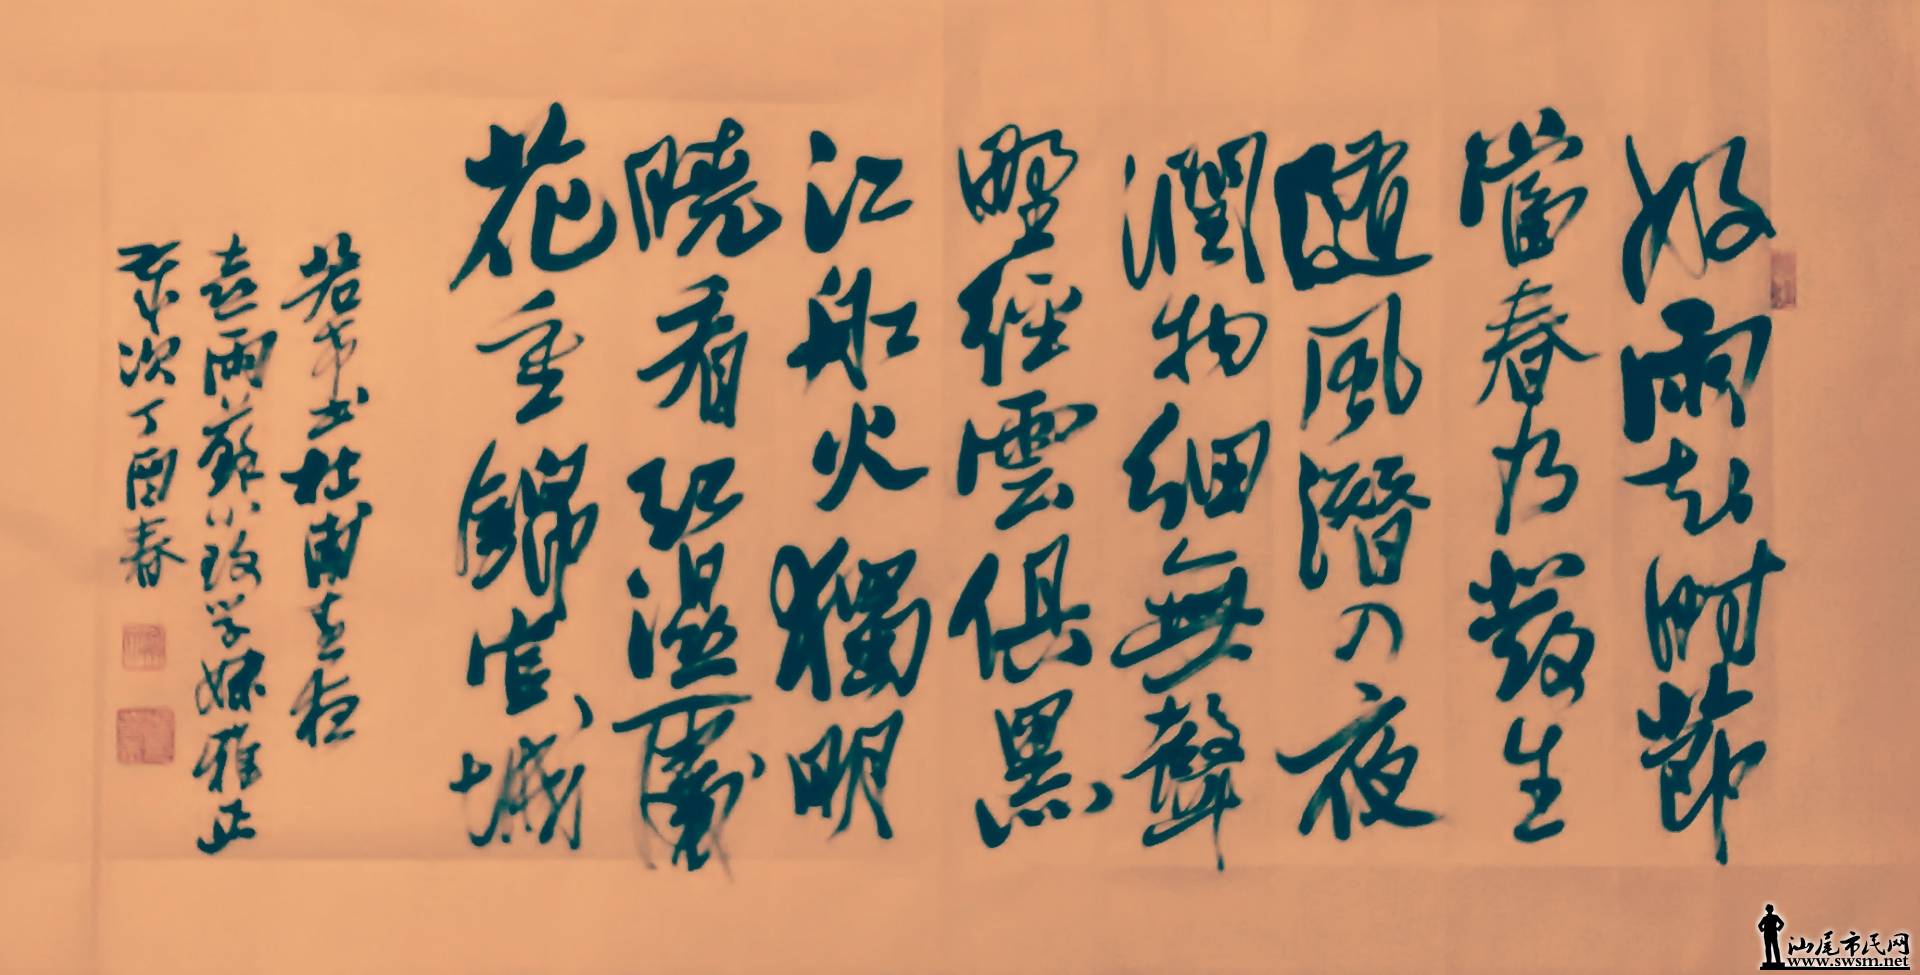 好雨知時節
當春乃發生
隨風潛入夜
潤物細無聲
野經雲俱黑
江船火獨明
曉看紅濕處
花重錦官城
书杜甫春夜
喜雨蘇小玫学妹雅正
歲次丁酉春
汕尾市民网
www.swsm.net